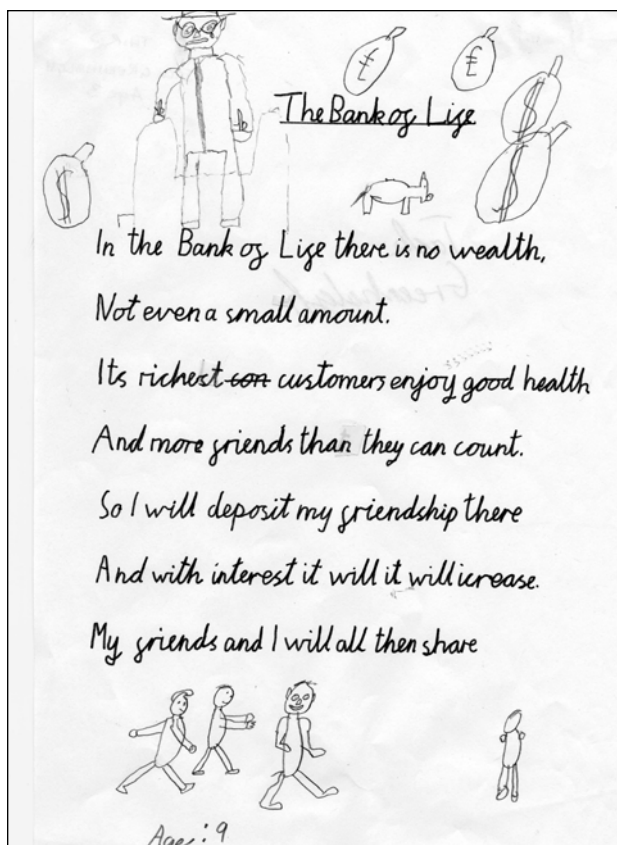 The Bank of Life
In the Bank of Life there is no wealth,
Not even a small amount.
Its richest con customers enjoy good health
And more friends than they can count.
So I will deposit my friendship there
And with interest it will it will icrease.
My friends and I will all then share
Age: 9